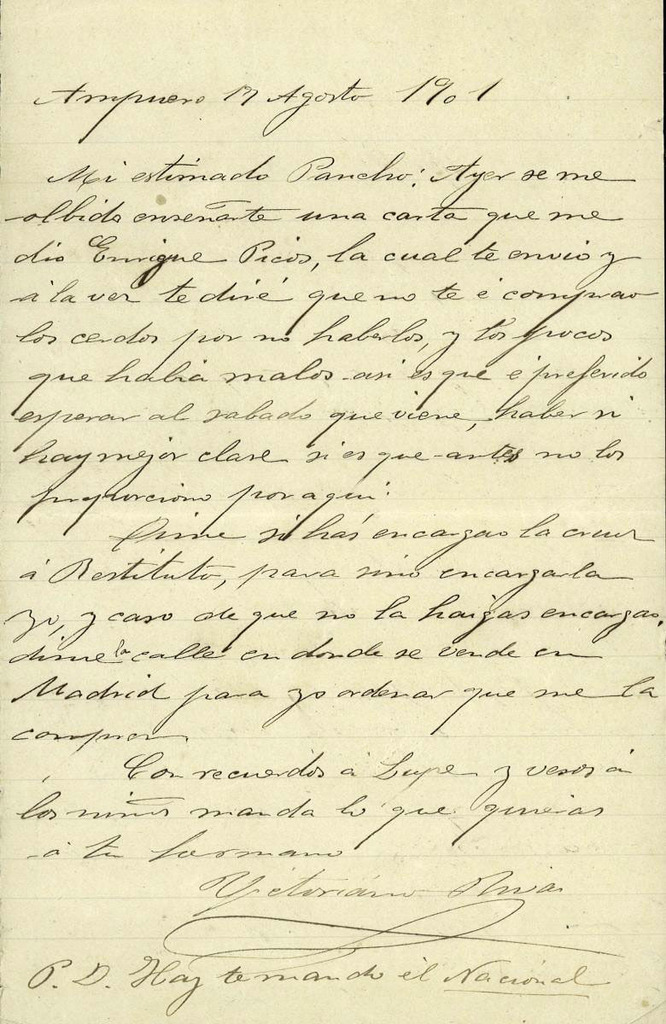 Ampuero 17 Agosto 1901
Mi estimado Pancho: Ayer se me
olbido enseñarte una carta que me
dio Enrique Picos, la cual te envio y
á la vez te diré que no te é comprao
los cerdos por no haberlos, y los pocos
que habia malos asi es que é preferido
esperar al sabado que viene, haber si
hay mejor clase si es que antes no los
proporciono por aqui.
Dime si hás encargao la cruz
á Restituto, para sino encargarla
yo, y caso de que no la haigas encargao,
dime la calle en donde se vende en
Madrid para yo ordenar que me la
compren
Con recuerdos á Lupe y vesos á
los niños manda lo que quieras
á tu hermano
Victoriano
P. D. Hoy te mando él Nacional